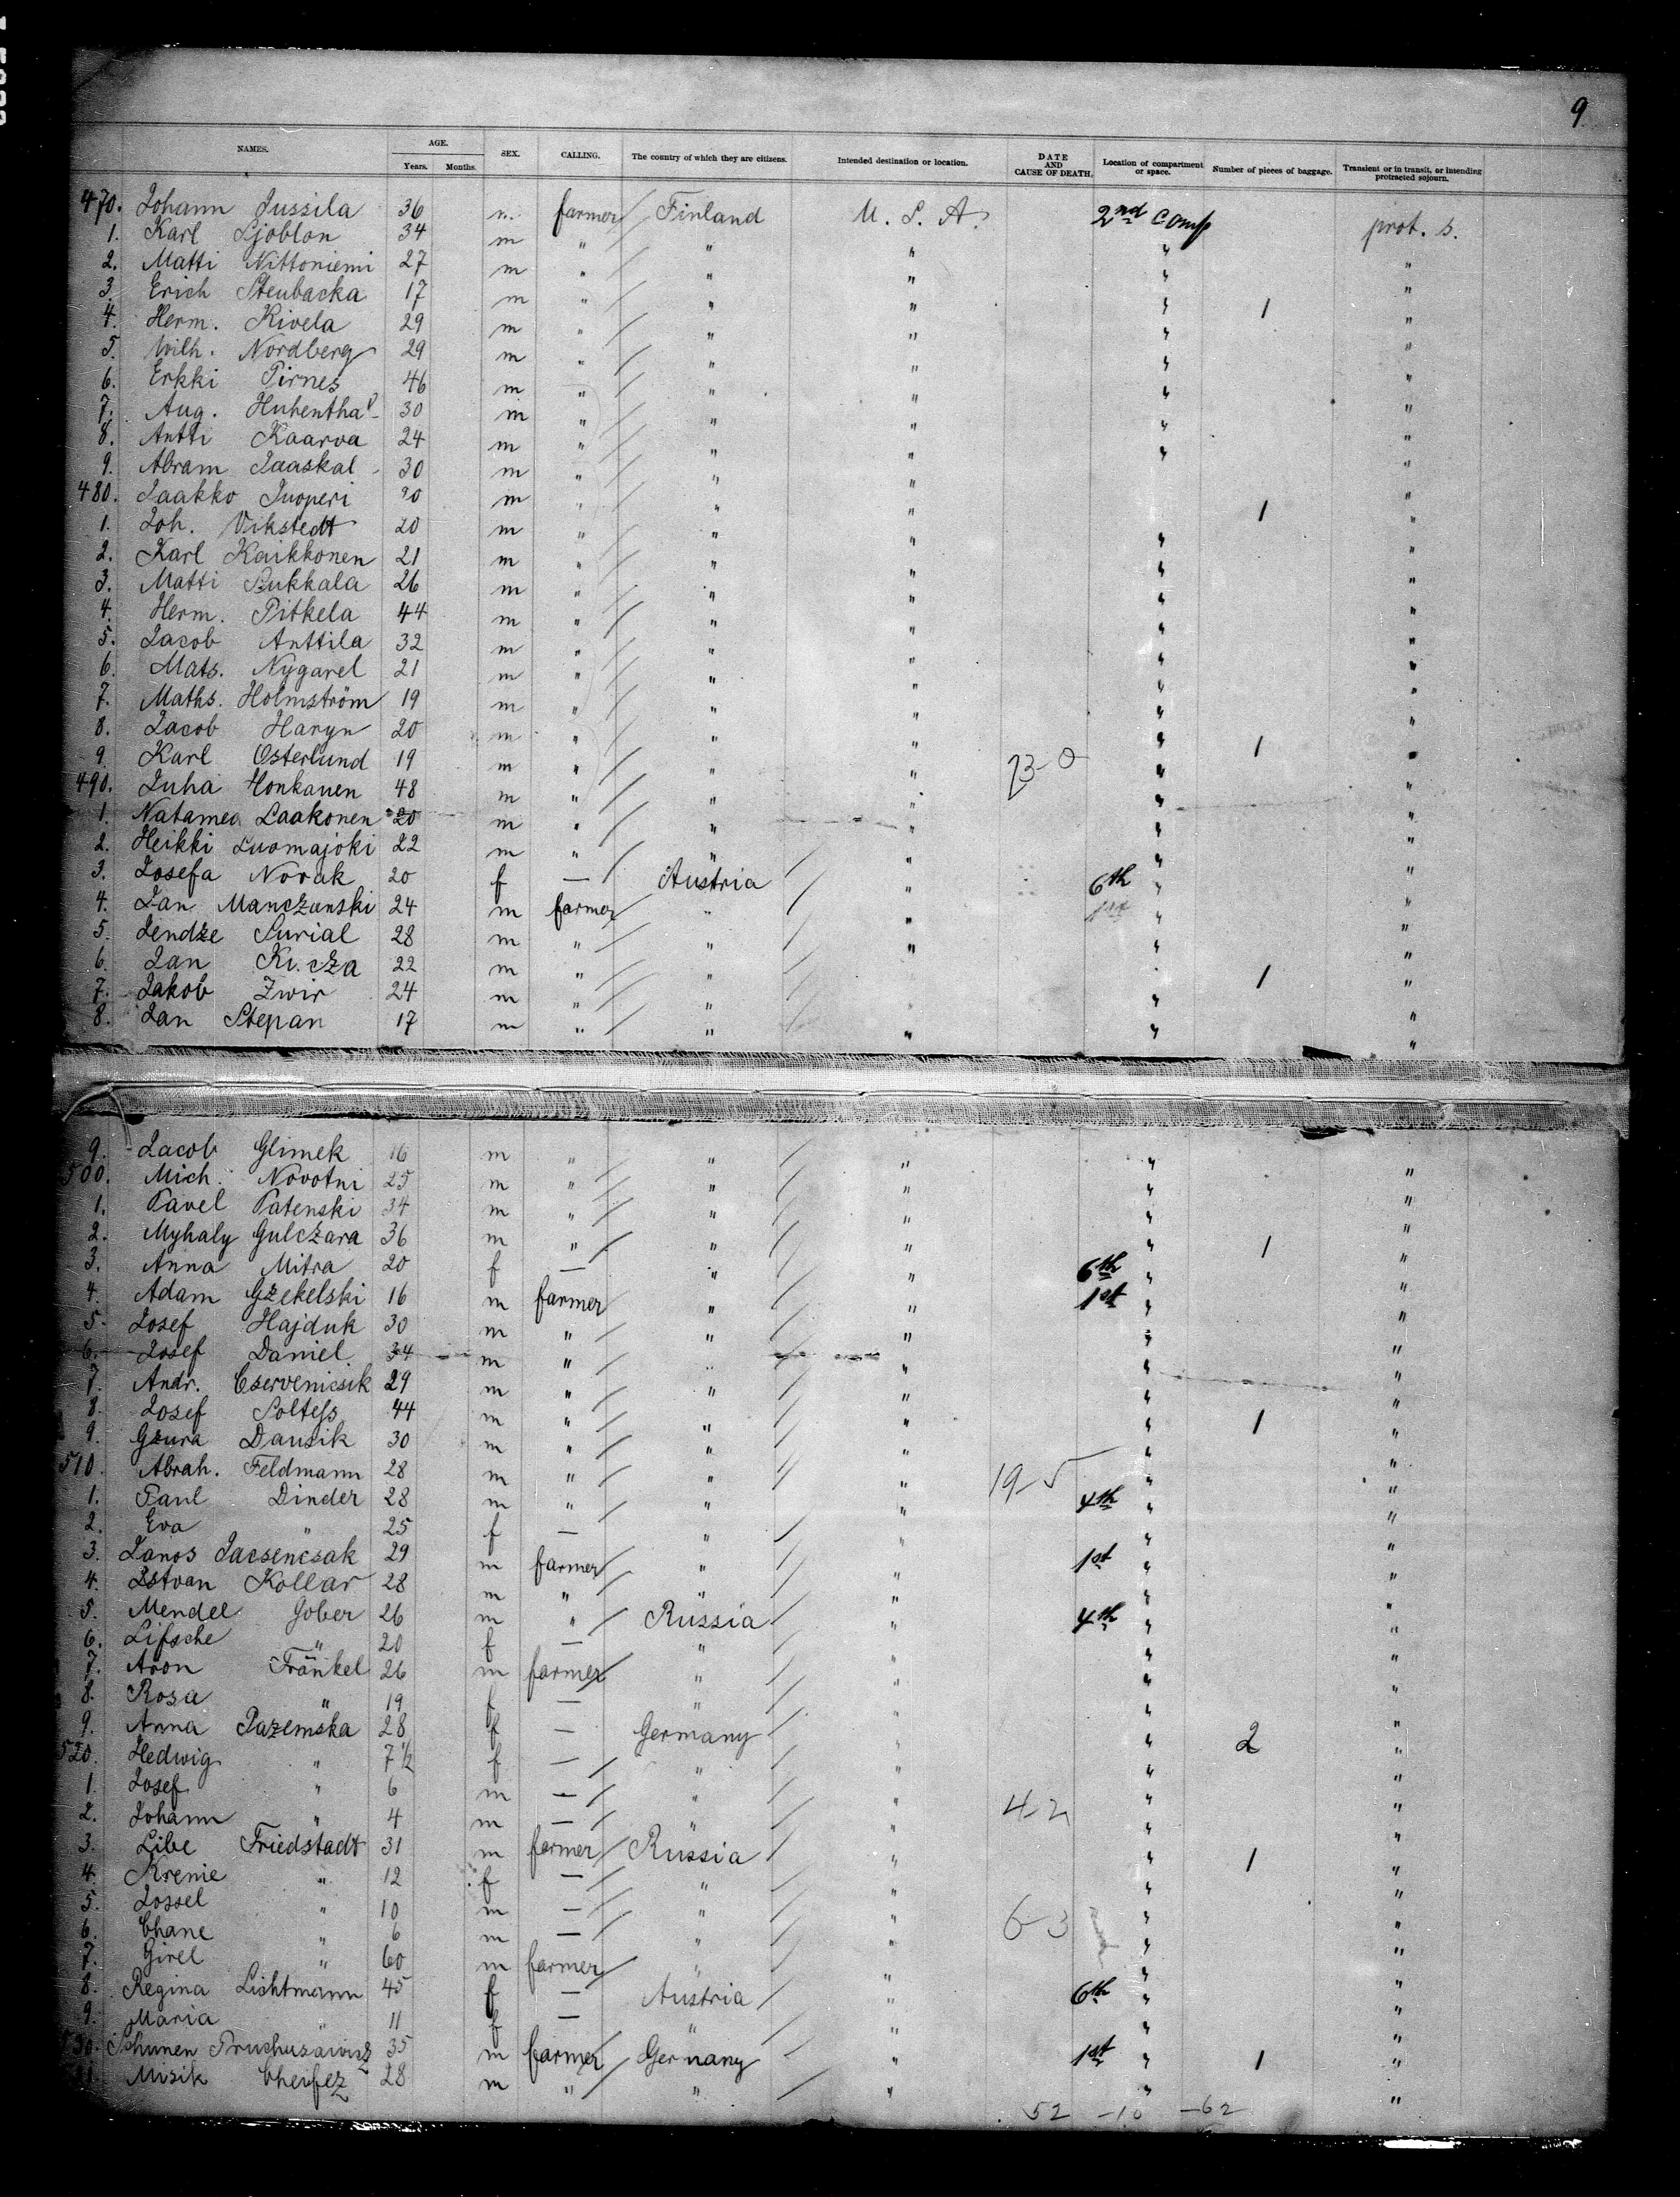 9
NAMES. AGE. Years. Months. SEX. CALLING. The country of which they are citizens. Intended destination or location. DATE AND CAUSE OF DEATH. Location of compartment or space. Number of pieces of baggage. Transient or in transit, or intending protracted sojourn.
470. Johann Jussila 36 m. farmer Finland U. S. A. 2nd comp prot. s.
1. Karl Sjoblon 34 m " " " " "
2. Matti Nittoniemi 27 m " " " " "
3. Erich Stenbacka 17 m " " " " 1 "
4. Herm. Kivela 29 m " " " " "
5. Wilh. Nordberg 29 m " " " " "
6. Erkki Pirnes 46 m " " " " "
7. Aug. Huhenthal 30 m " " " " "
8. Antti Kaarva 24 m " " " " "
9. Abram Jaaskal 30 m " " " "
480. Jaakko Juoperi 20 m " " " 1 "
1. Joh. Vikstedt 20 m " " " " "
2. Karl Kaikkonen 21 m " " " " "
3. Matti Sukkala 26 m " " " " "
4. Herm. Pitkela 44 m " " " " "
5. Jacob Anttila 32 m " " " " "
6. Mats. Nygarel 21 m " " " " "
7. Maths. Holmström 19 m " " " " "
8. Jacob Haryn 20 m " " " " 1 "
9. Karl Osterlund 19 m " " " 23-0 " "
490. Juha Honkanen 48 m " " " " "
1. Natamea Laakonen 20 m " " " " "
2. Heikki Luomajoki 22 m " " " " "
3. Josefa Novak 20 f — Austria " 6th " "
4. Jan Manczanski 24 m farmer " " 1st " "
5. Jendze Surial 28 m " " " " "
6. Jan Ki.cza 22 m " " " 1 "
7. Jakob Zwir 24 m " " " " "
8. Jan Stepan 17 m " " " " "
9. Jacob Glimek 16 m " " " " "
500. Mich. Novotni 25 m " " " " "
1. Pavel Patenski 34 m " " " " "
2. Myhaly Gulczara 36 m " " " " 1 "
3. Anna Mitra 20 f — " " 6th " "
4. Adam Gzekelski 16 m farmer " " 1st " "
5. Josef Hajduk 30 m " " " " "
6. Josef Daniel 34 m " " " " "
7. Andr. Cservenicsik 29 m " " " " "
8. Josef Soltess 44 m " " " " 1 "
9. Gzura Dansik 30 m " " " " "
510. Abrah. Feldmann 28 m " " " 19-5 " "
1. Paul Dinder 28 m " " " 4th " "
2. Eva " 25 f — " " " "
3. Janos Jacsencsak 29 m farmer " " 1st " "
4. Istvan Kollar 28 m " " " " "
5. Mendel Gober 26 m " Russia " 4th " "
6. Lifsche " 20 f — " " " "
7. Aron Fränkel 26 m farmer " " " "
8. Rosa " 19 f — " " " "
9. Anna Pazemska 28 f — Germany " " 2 "
520. Hedwig " 7 1/2 f — " " " "
1. Josef " 6 m — " " " "
2. Johann " 4 m — " " 4-2 " "
3. Libe Friedstadt 31 m farmer Russia " " 1 "
4. Krenie " 12 f — " " " "
5. Jossel " 10 m — " " " "
6. Chane " 6 m — " " 6-3 " "
7. Girel " 60 m farmer " " " "
8. Regina Lichtmann 45 f — Austria " 6th " "
9. Maria " 11 f — " " " "
530. Schmen Pruchuzawisz 35 m farmer Germany " 1st " 1 "
31. Misik Cheifez 28 m " " " " "
52 -10 -62